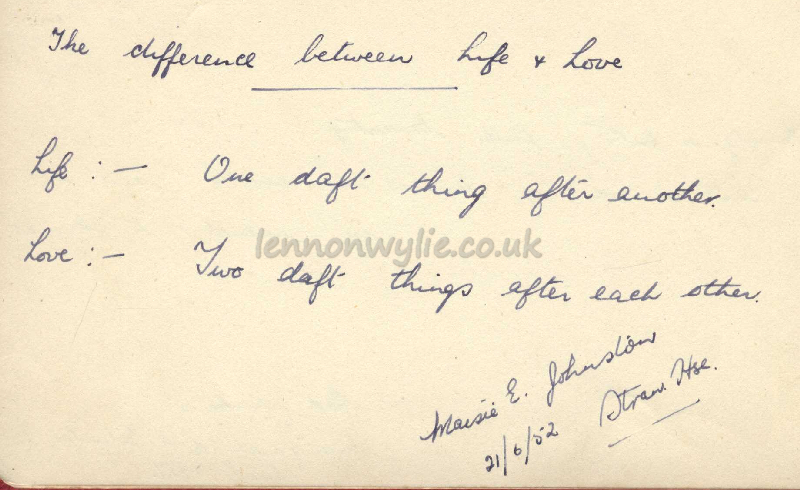 The difference between Life & Love
Life :- One daft thing after another.
lennonwylie.co.uk
Love :- Two daft things after each other.
Maisie E. Johnston
21/6/52 Stran. Hse.